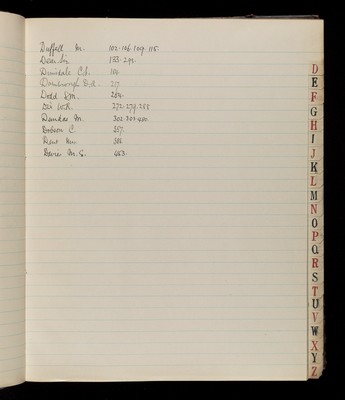 Duffell M. 102. 106. 109. 115.
Dear Sir 133. 291.
Dimsdale C.J.
Dornbrough B.A. 217.
Dodd 264.
Dix W.R. 272. 279. 288
Dundas M. 302. 303. 400.
Dobson C. 357.
Dent Mrs 386
Davies M. S. 463.
D
E
F
G
H
I
J
K
L
M
N
O
P
Q
R
S
T
U
V
W
X
Y
Z